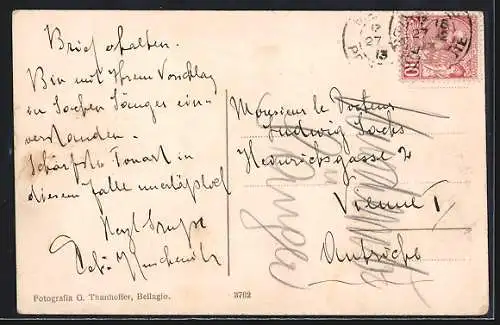 Brief erhalten.
Bin mit Ihrem Vorschlag
in Sachen Sänger ein-
verstanden.
Schärfste Tonart in
diesem Falle unerläßlich
Herzl. Grüße
Monsieur le Docteur
Ludwig Sachs
Heinrichsgasse 2
Vienne I
Autriche
Sänger
Fotografia G. Thanhoffer, Bellagio.
3762
12
27
13
10